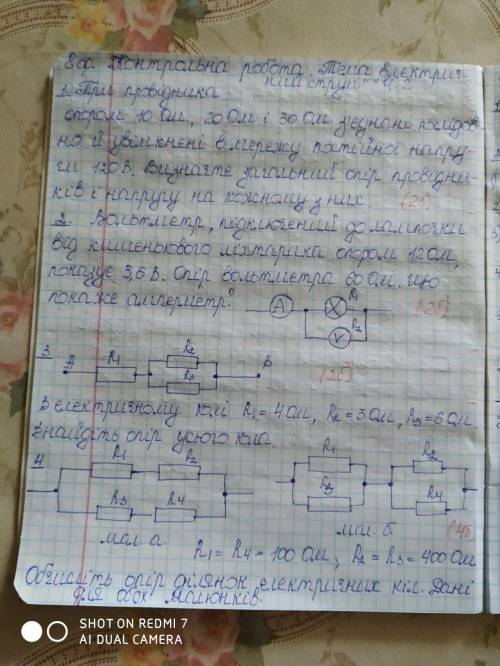 8ф. Контрольна робота. Тема Електрич-
ний струм" Ч.2
1. Три провідника
опором 10 Ом, 20 Ом і 30 Ом з'єднані послідов-
но й увімкнені в мережу постійної напру-
ги 120 В. Визначте загальний опір провідни-
ків і напругу на кожному з них. (2б)
2. Вольтметр, підключений до лампочки
від кишенькового ліхтарика опором 12 Ом,
показує 3,6 В. Опір вольтметра 60 Ом. Що
покаже амперметр?
A R1 R2 V (2б)
3. A R1 R2 R3 B (2б)
В електричному колі R1 = 4 Ом, R2 = 3 Ом, R3 = 6 Ом
Знайдіть опір усього кола.
4 R1 R2 R3 R4
R1 R3 R2 R4
мал. а. мал. б. (4б)
R1 = R4 = 100 Ом, R2 = R3 = 400 Ом
Обчисліть опір ділянок електричних кіл. Дані
для обох малюнків.
SHOT ON REDMI 7
AI DUAL CAMERA